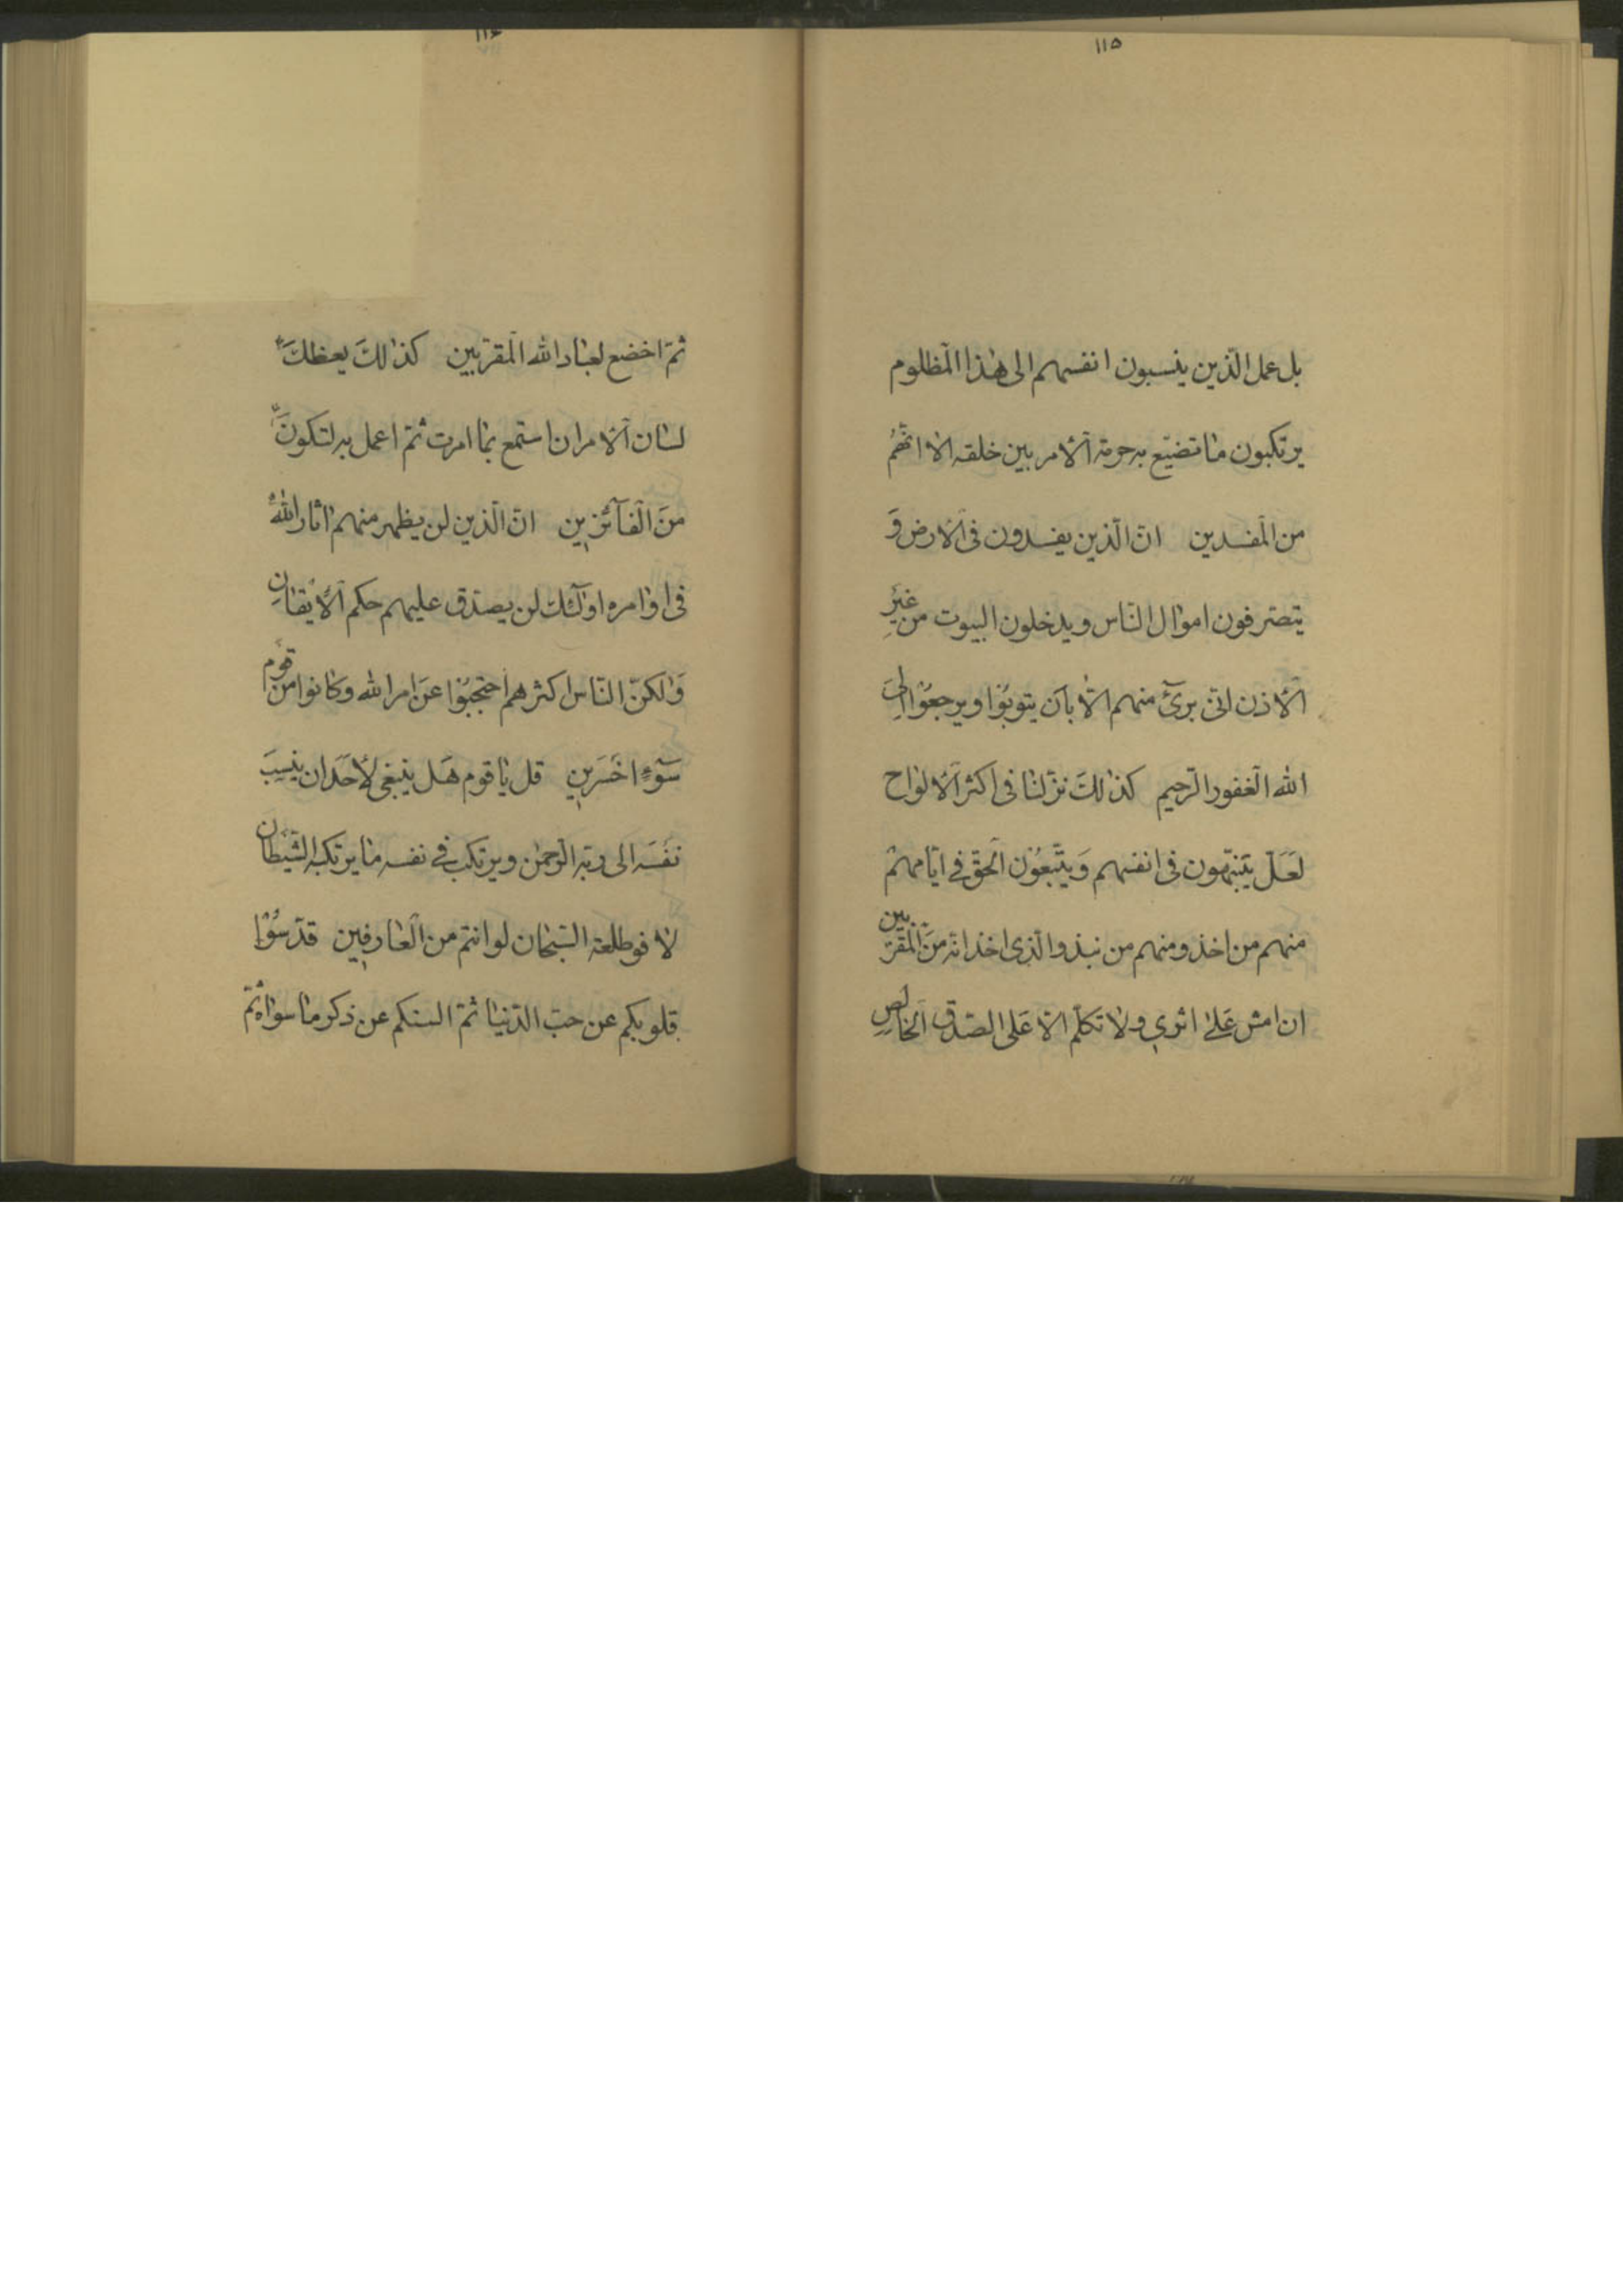 ١١٥
بل عمل الّذين ينسبون انفسهم الى هٰذا الْمظلوم
يرتكبون ما تضيّع به حرمة الْأمر بين خلقه الا انّهُم
من الْمفسدين انّ الّذين يفسدون فى الْارض وَ
يتصرفون اموال النّاس ويدخلون البيوت من غيرِ
الْأذن انّى برىٓ منهم الّا بان يتوبُوا ويرجعُوْا الىَ
الله الْغفور الرّحيم كذٰلكَ نزّلنا فى اكثر الْالواح
لعَلّ يتنبّهون فى انفسهم وَيتّبعُون الْحقّ فى ايّامهمْ
منهم من اخذ ومنهم من نبذ والّذى اخذ انّه منَ الْمقرّبين
ان امش عَلىٰ اثرى ولا تكلّم الّا عَلى الصّدق الْخالصِ
١١٦
ثمّ اخضع لعباد الله الْمقرّبين كذٰلكَ يعظكَ
لسٰان الْامر ان استمع بما امرت ثمّ اعمل به لتكونَنَّ
منَ الْفآئزين انّ الّذين لن يظهر منهم اثار اللهُ
فى اوامره اولٓئك لن يصدّق عليهم حكم الْأيقانِ
وَلٰكنّ النّاس اكثرهم احتجبُوا عنَ امر الله وكانوا من قوْم
سَوْءٍ اخْسَرين قل يا قوم هَل ينبغى لأحَد ان ينسبَ
نفسَه الى ربّه الرّحمٰن ويرتكب فى نفسه ما يرتكبه الشّيطان
لا فو طلعة السّبحان لو انتم من الْعارفين قدّسُوْا
قلوبكم عن حبّ الدّنيا ثمّ السنكم عن ذكر ما سواه ثمّ